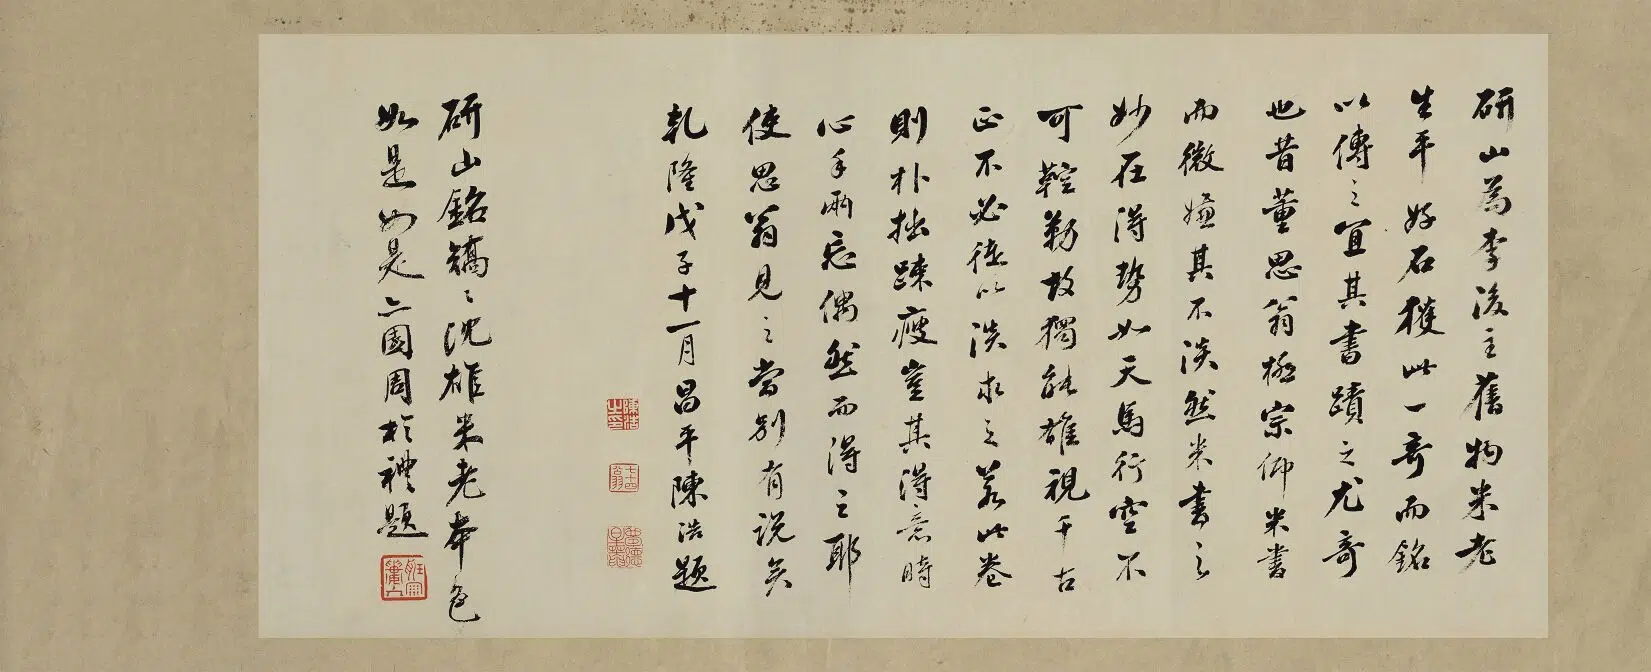 研山為李後主舊物米老
生平好石獲此一奇而銘
以傳之宜其書蹟之尤奇
也昔董思翁極宗仰米書
而微嫌其不淡然米書之
妙在得勢如天馬行空不
可鞚勒故獨能雄視千古
正不必徒以淡求之若此卷
則朴拙疎瘦豈其得意時
心手兩忘偶然而得之耶
使思翁見之當別有說矣
乾隆戊子十一月昌平陳浩題
陳浩之印
七十四翁
研山銘矯々沈雄米老本色
如是如是六國周於禮題